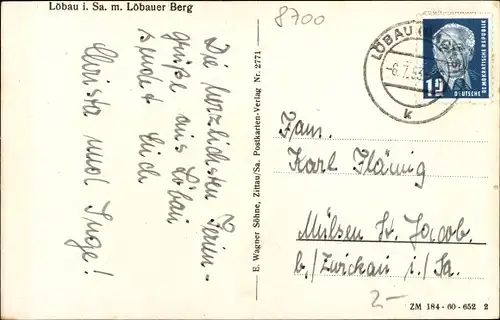 Löbau i. Sa. m. Löbauer Berg
8700
Die herzlichsten Ferien-
grüße aus Löbau
sendet Euch
Christa und Inge!
E. Wagner Söhne, Zittau/Sa. Postkarten-Verlag Nr. 2771
LÖBAU
-6.7.53
k
12
DEUTSCHE
DEMOKRATISCHE REPUBLIK
Fam.
Karl Flämig
Mülsen St. Jacob.
b./Zwickau i./Sa.
2-
ZM 184 - 60 - 652 2